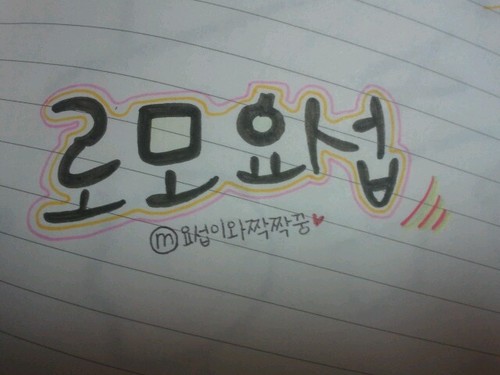 로모요섭
ⓜ요섭이와짝짝꿍♥